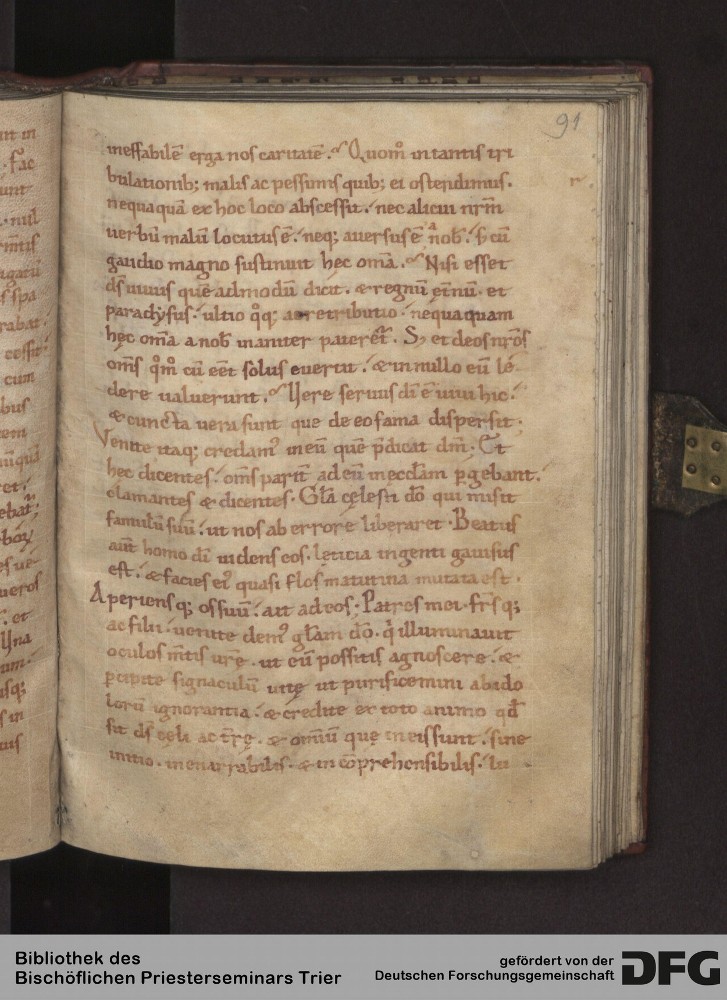 91
ineffabilē erga nos caritatē. Quom̊ in tantis tri
bulationib; malis ac pessimis quib; ei ostendimus.
nequaquā ex hoc loco abscessit. nec alicui nr̄m
uerbū malū locutus ē. neq; auersus ē a nob̄. s; cū
gaudio magno sustinuit hęc om̄a. Nisi esset
d̄s uiuus quē admodū dicit. & regnū et̄nū. et
paradysus. ultio q̊q; ac retributio. nequaquam
hęc om̄a a nob̄ inaniter pateret̄. S; et deos nr̄os
om̄s q̊m̊ cū eēt solus euertit. & in nullo eū lę
dere ualuerunt. Uere seruus dī ē uiui hic.
& cuncta uera sunt que de eo fama dispersit.
Venite itaq; credam' in eū quē p̄dicat dm̄. Et
hęc dicentes. om̄s parit̄ ad eū in eccl̄am pgebant.
clamantes & dicentes. Gl̄a cęlesti dō qui misit
famulū suū. ut nos ab errore liberaret. Beatus
aūt homo dī uidens eos. leticia ingenti gauisus
est. & facies ei' quasi flos matutina mutata est.
Aperiensq; os suū. ait ad eos. Patres mei. fr̄sq;
ac filii. uenite dem' gl̄am dō. q̇ illuminauit
oculos m̄tis ur̄ę. ut eū possitis agnoscere. &
pcipite signaculū uitę ut purificemini ab ido
lorū ignorantia. & credite ex toto animo qđ
sit d̄s cęli ac t̄rę. & omniū quę in eis sunt. sine
initio. inenarrabilis. & incōprehensibilis. lu
Bibliothek des
Bischöflichen Priesterseminars Trier
gefördert von der
Deutschen Forschungsgemeinschaft
DFG